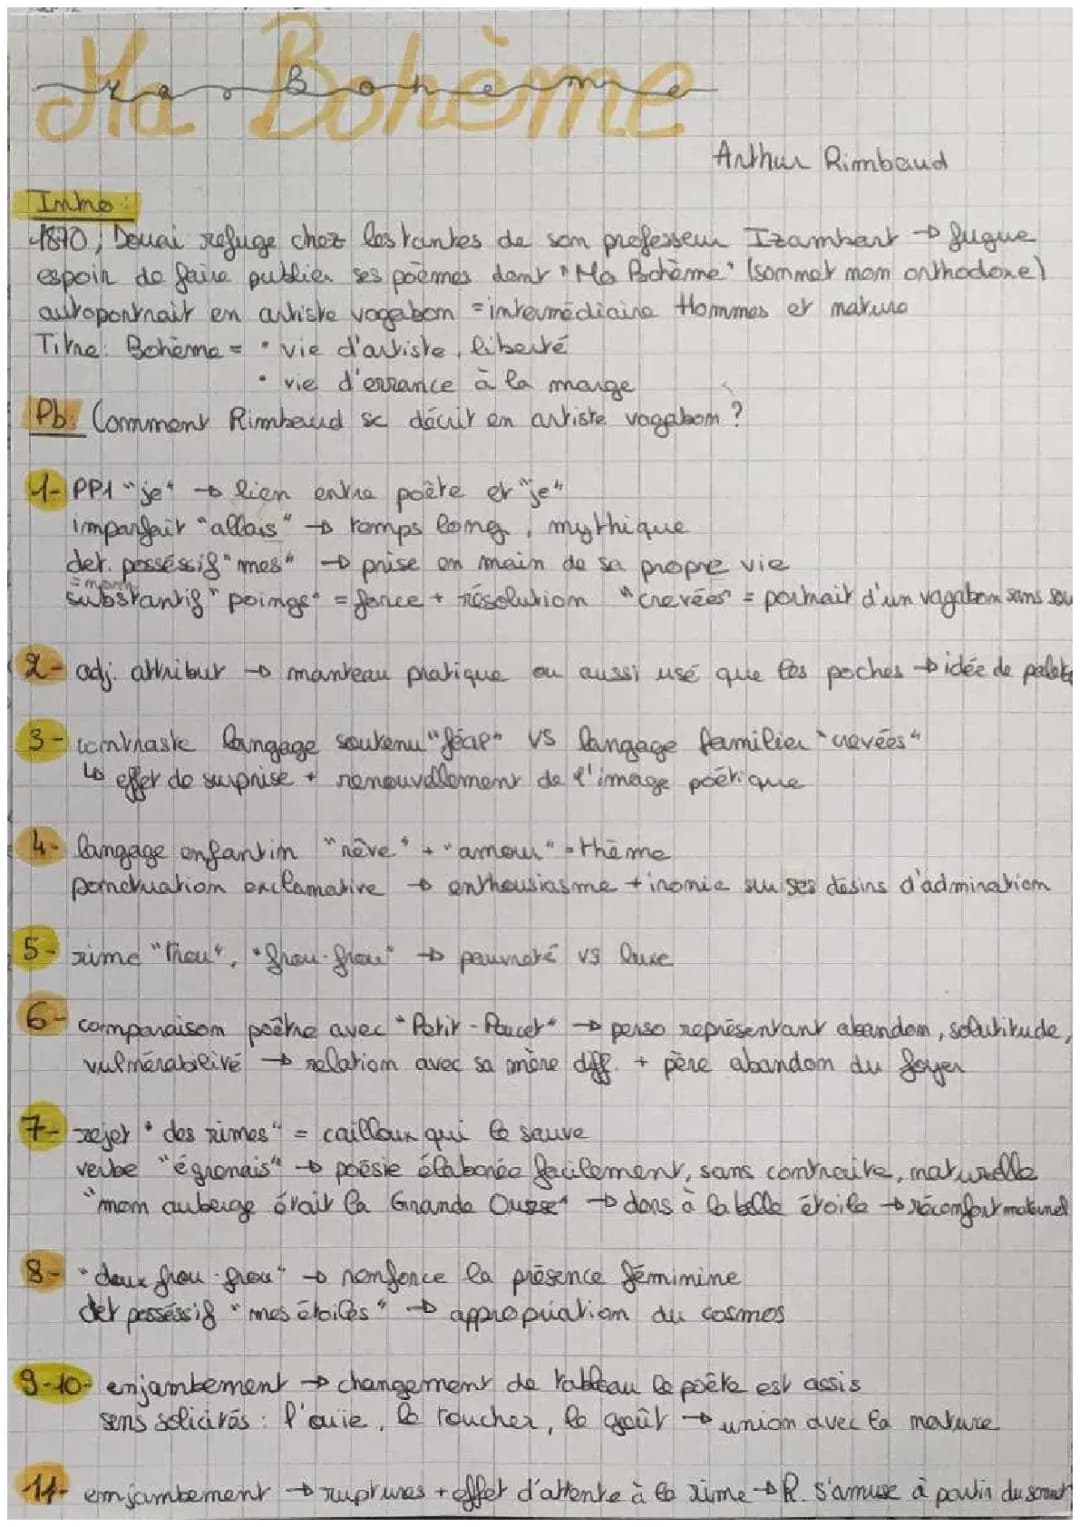 Ma Bohème
Ma Boheme
Arthur Rimbaud
Intro :
1870, Douai refuge chez les tantes de son professeur Izambart → fugue
espoir de faire publier ses poèmes dont "Ma Bohème" (sonnet non orthodoxe)
autoportrait en artiste vagabon = intermédiaire Hommes et nature
Titre: Bohème = • vie d'artiste, liberté
• vie d'errance à la marge
Pb: Comment Rimbaud se décrit en artiste vagabon ?
1- PP1 "je" → lien entre poète et "je"
imparfait "allais" → temps long, mythique
det. possessif "mes" → prise en main de sa propre vie
= mains
substantif "poings" = force + résolution "crevées" = portrait d'un vagabon sans sou
2- adj. attribut → manteau pratique ou aussi usé que les poches → idée de
3- contraste langage soutenu "féal" VS langage familier "crevées"
↳ effet de surprise + renouvellement de l'image poétique
4- langage enfantin "rêve" + "amour" = thème
ponctuation exclamative → enthousiasme + ironie sur ses désirs d'admiration
5- rime "trou", "frou-frou" → pauvreté vs luxe
6- comparaison poètre avec "Petit-Poucet" → perso représentant abandon, solutitude,
vulnérabilité → relation avec sa mère diff. + père abandon du foyer
7- rejet "des rimes" = cailloux qui le sauve
verbe "égrenais" → poésie élaborée facilement, sans contrainte, naturelle
"mon auberge était la Grande Ourse" → dors à la belle étoile → réconfort maternel
8- "doux frou-frou" → renforce la présence féminine
det possessif "mes étoiles" → appropriation du cosmos
9-10- enjambement → changement de tableau le poète est assis
sens solicités : l'ouïe, le toucher, le goût → union avec la nature
11- enjambement → ruptures + effet d'attente à la rime → R. s'amuse à partir du sonnet